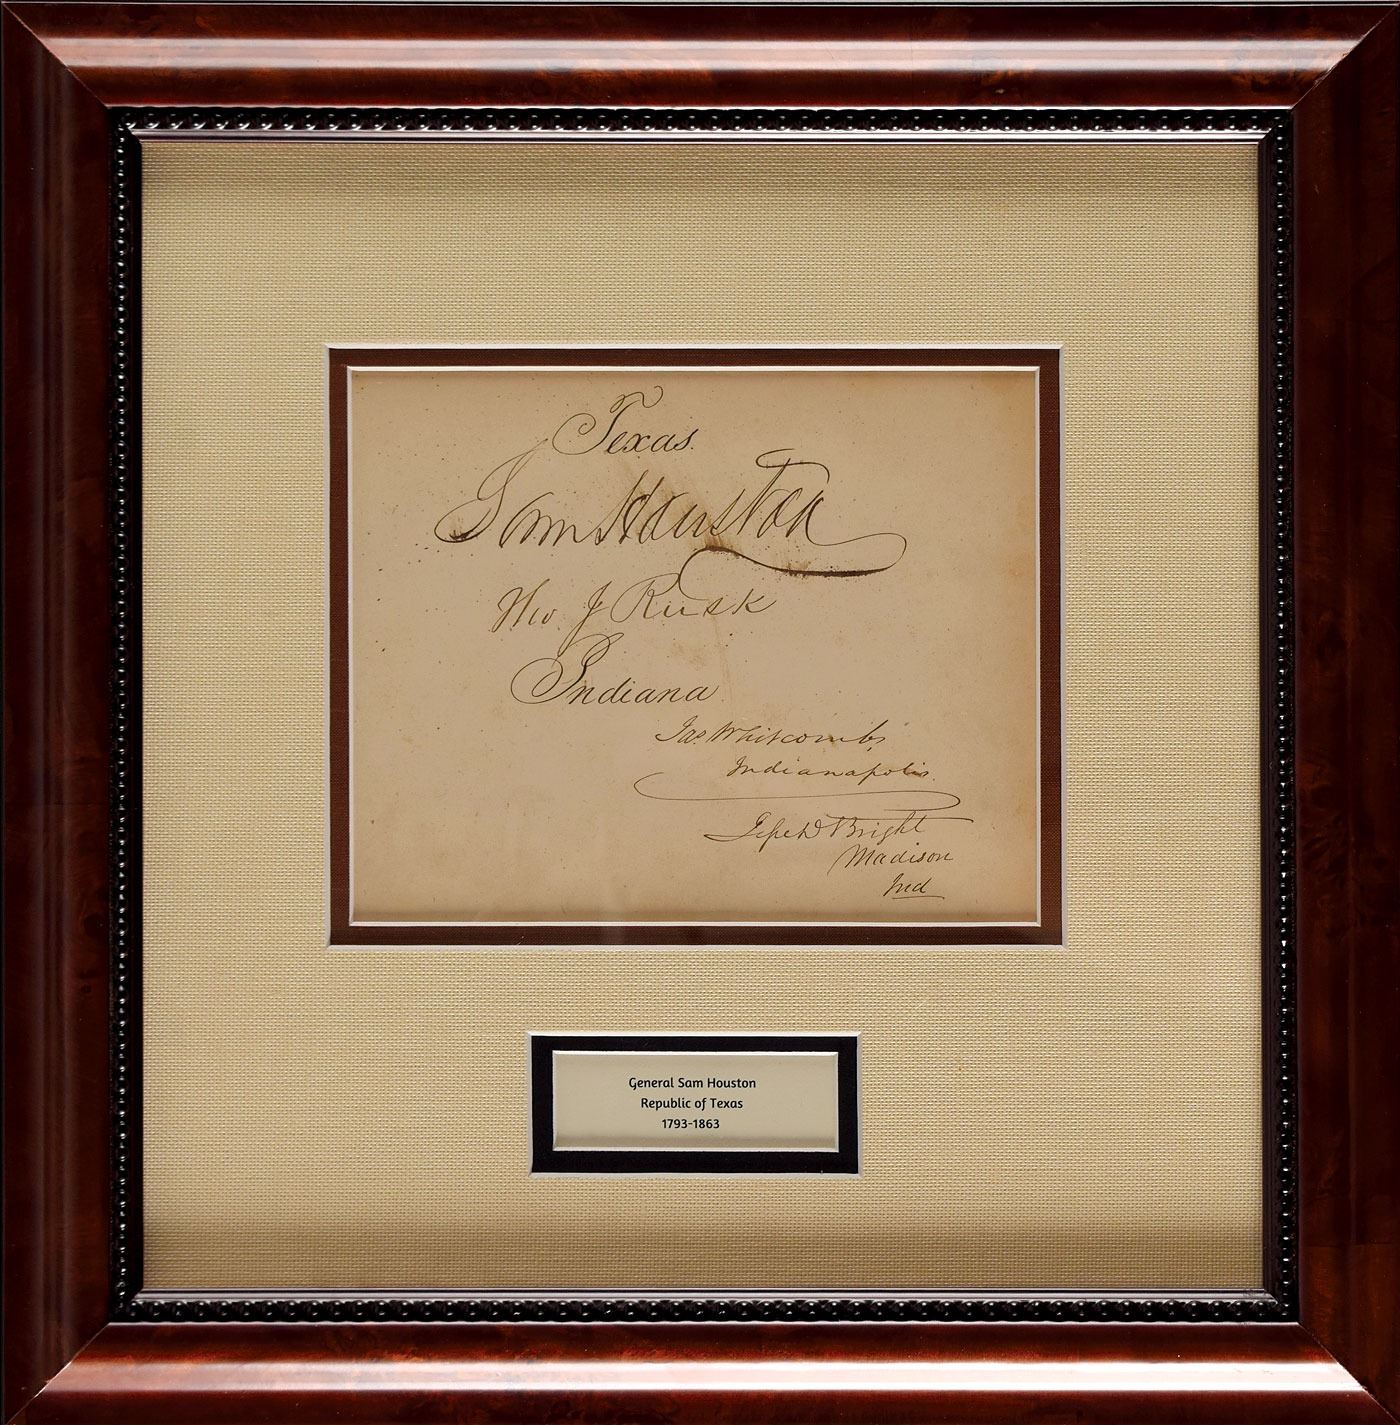 Texas.
Sam Houston
Tho J Rusk
Indiana
Jas. Whitcomb,
Indianapolis.
Jesse D Bright
Madison
Ind
General Sam Houston
Republic of Texas
1793-1863